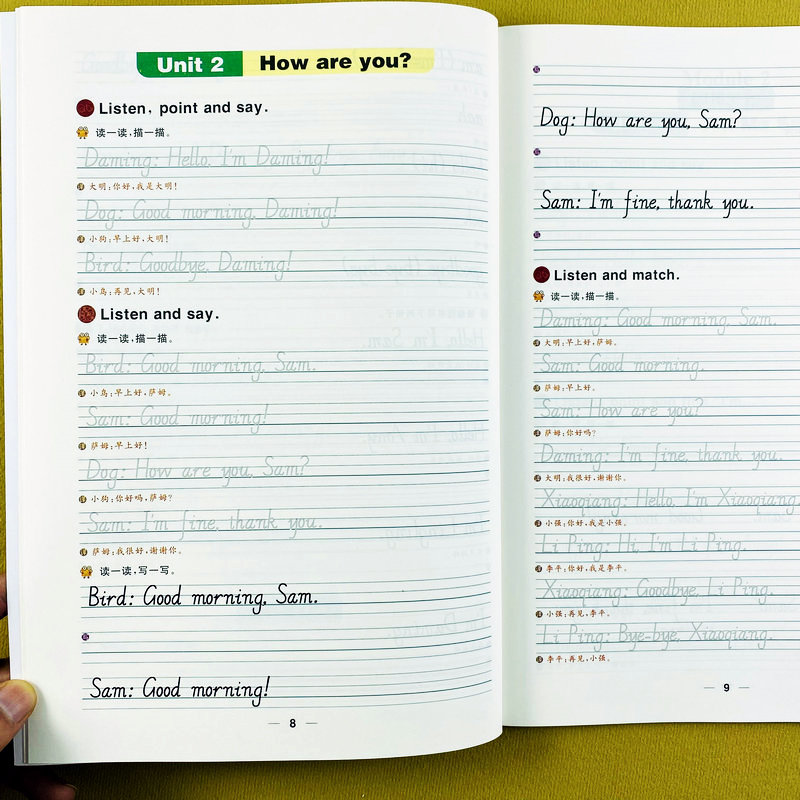 Unit 2 How are you?
Listen, point and say.
读一读,描一描。
Daming: Hello, I'm Daming!
译 大明:你好,我是大明!
Dog: Good morning, Daming!
译 小狗:早上好,大明!
Bird: Goodbye, Daming!
译 小鸟:再见,大明!
Listen and say.
读一读,描一描。
Bird: Good morning, Sam.
译 小鸟:早上好,萨姆。
Sam: Good morning!
译 萨姆:早上好!
Dog: How are you, Sam?
译 小狗:你好吗,萨姆?
Sam: I'm fine, thank you.
译 萨姆:我很好,谢谢你。
读一读,写一写。
Bird: Good morning, Sam.
Sam: Good morning!
— 8 —
Dog: How are you, Sam?
Sam: I'm fine, thank you.
Listen and match.
读一读,描一描。
Daming: Good morning, Sam.
译 大明:早上好,萨姆。
Sam: Good morning.
译 萨姆:早上好。
Sam: How are you?
译 萨姆:你好吗?
Daming: I'm fine, thank you.
译 大明:我很好,谢谢你。
Xiaoqiang: Hello, I'm Xiaoqiang
译 小强:你好,我是小强。
Li Ping: Hi, I'm Li Ping.
译 李平:你好,我是李平。
Xiaoqiang: Goodbye, Li Ping.
译 小强:再见,李平。
Li Ping: Bye-bye, Xiaoqiang.
译 李平:再见,小强。
— 9 —